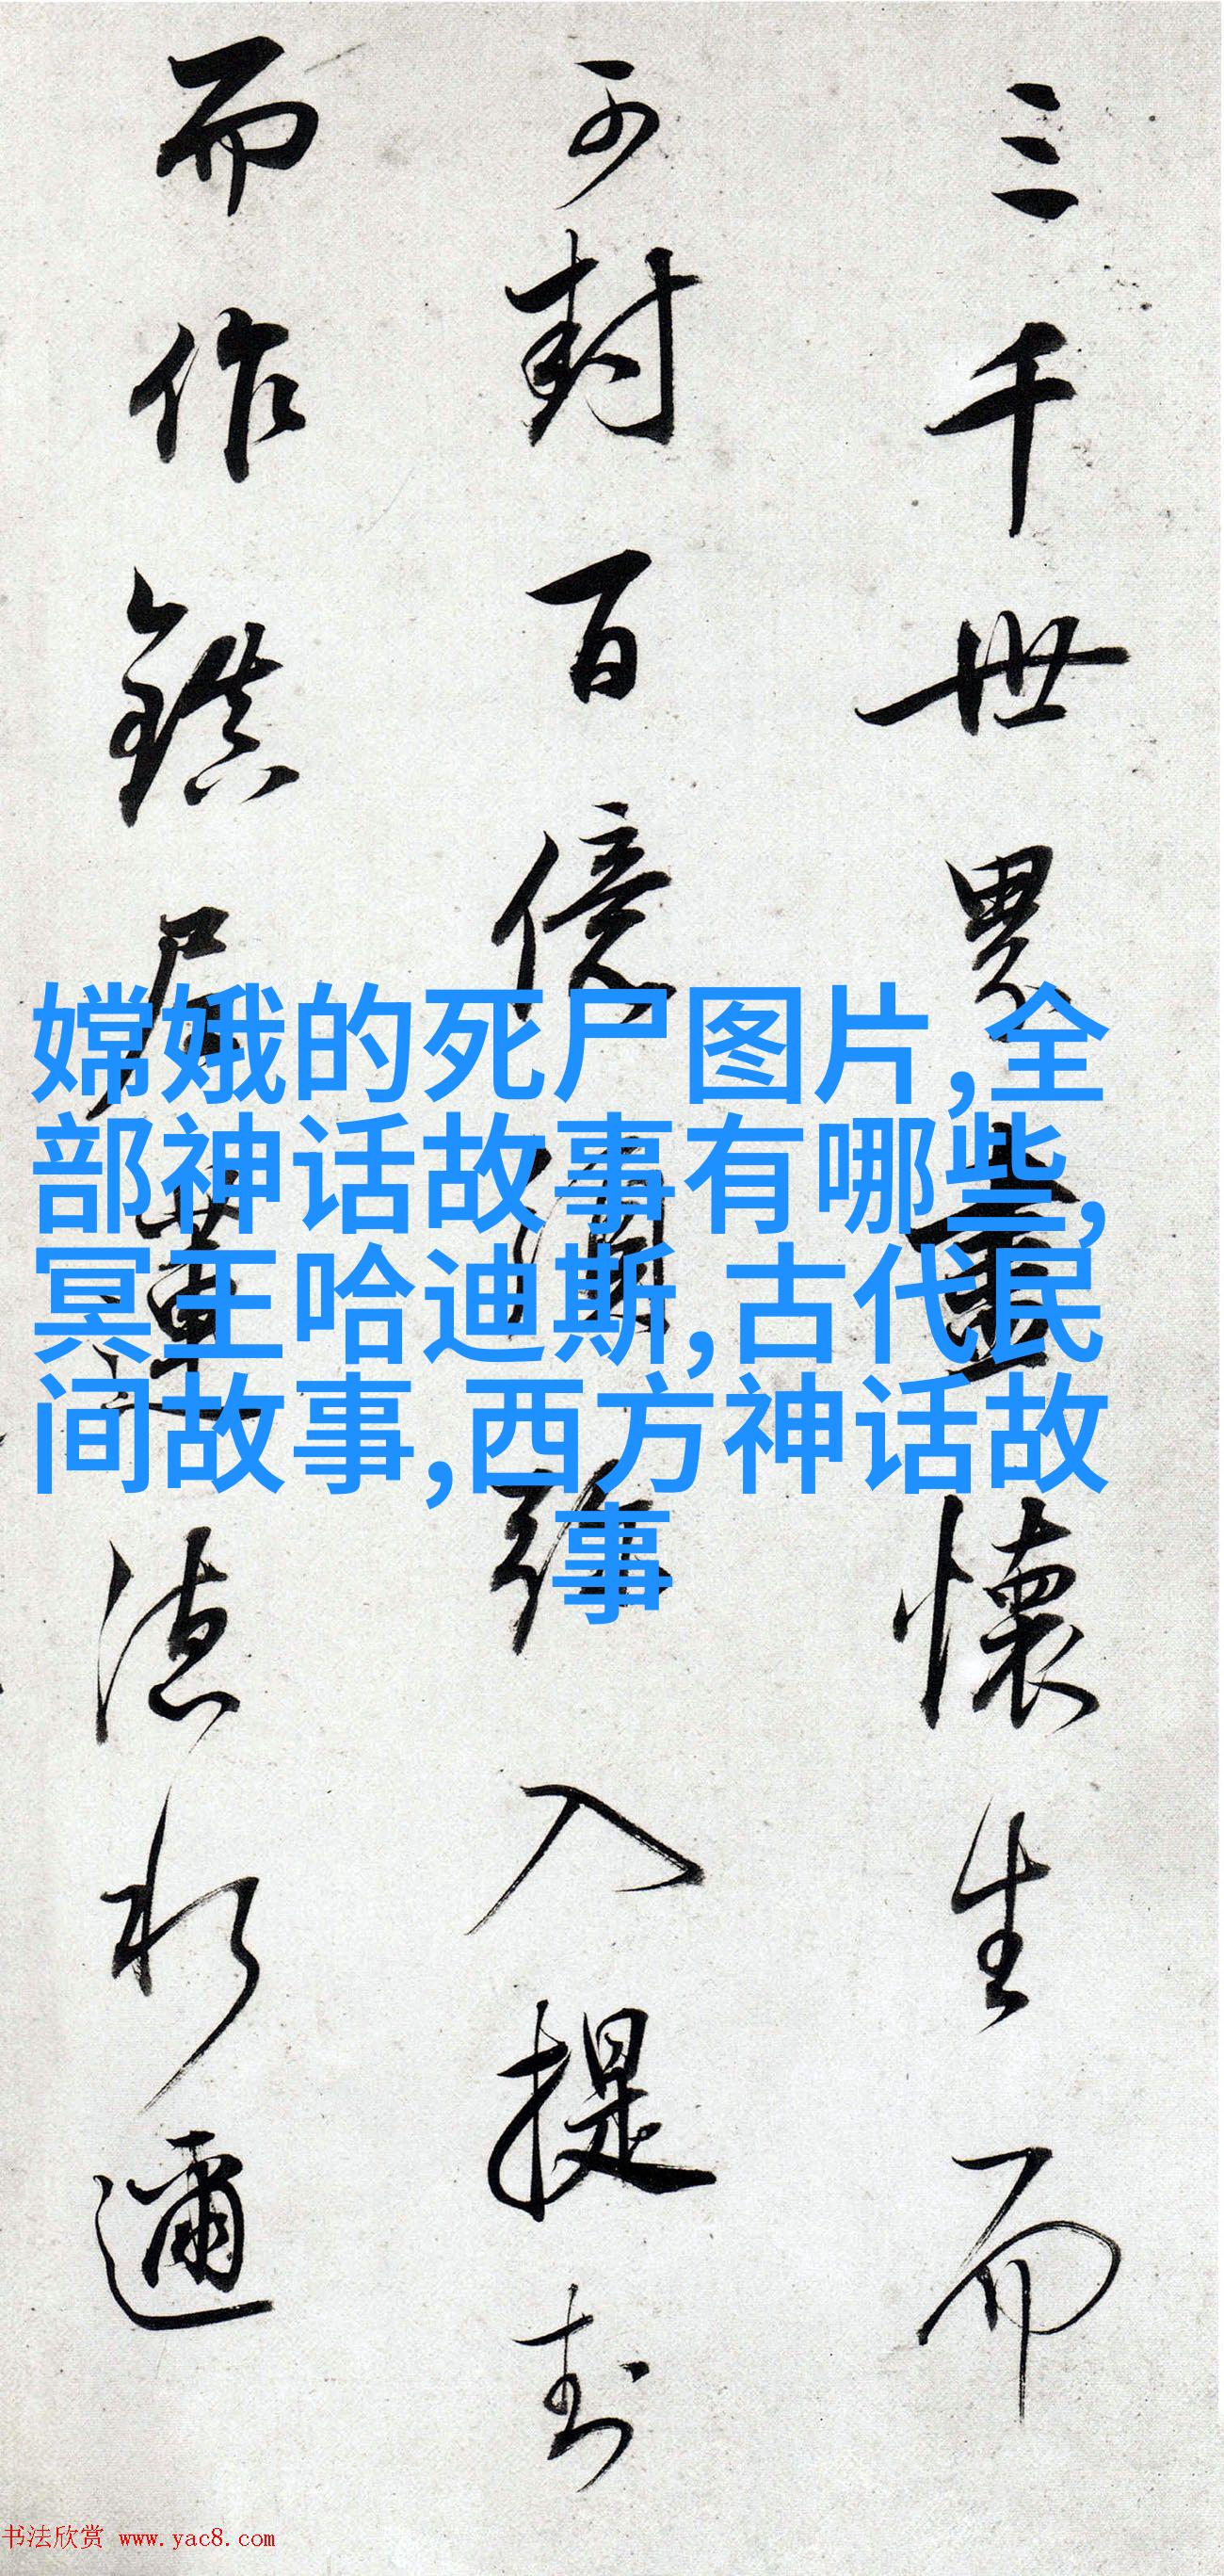 三千世界盡懷生而
可封百億彌入提封
而作鎮居德水邇
嫦娥的死尸图片,全
部神话故事有哪些,
冥王哈迪斯,古代民
间故事,西方神话故
事
书法欣赏 www.yac8.com